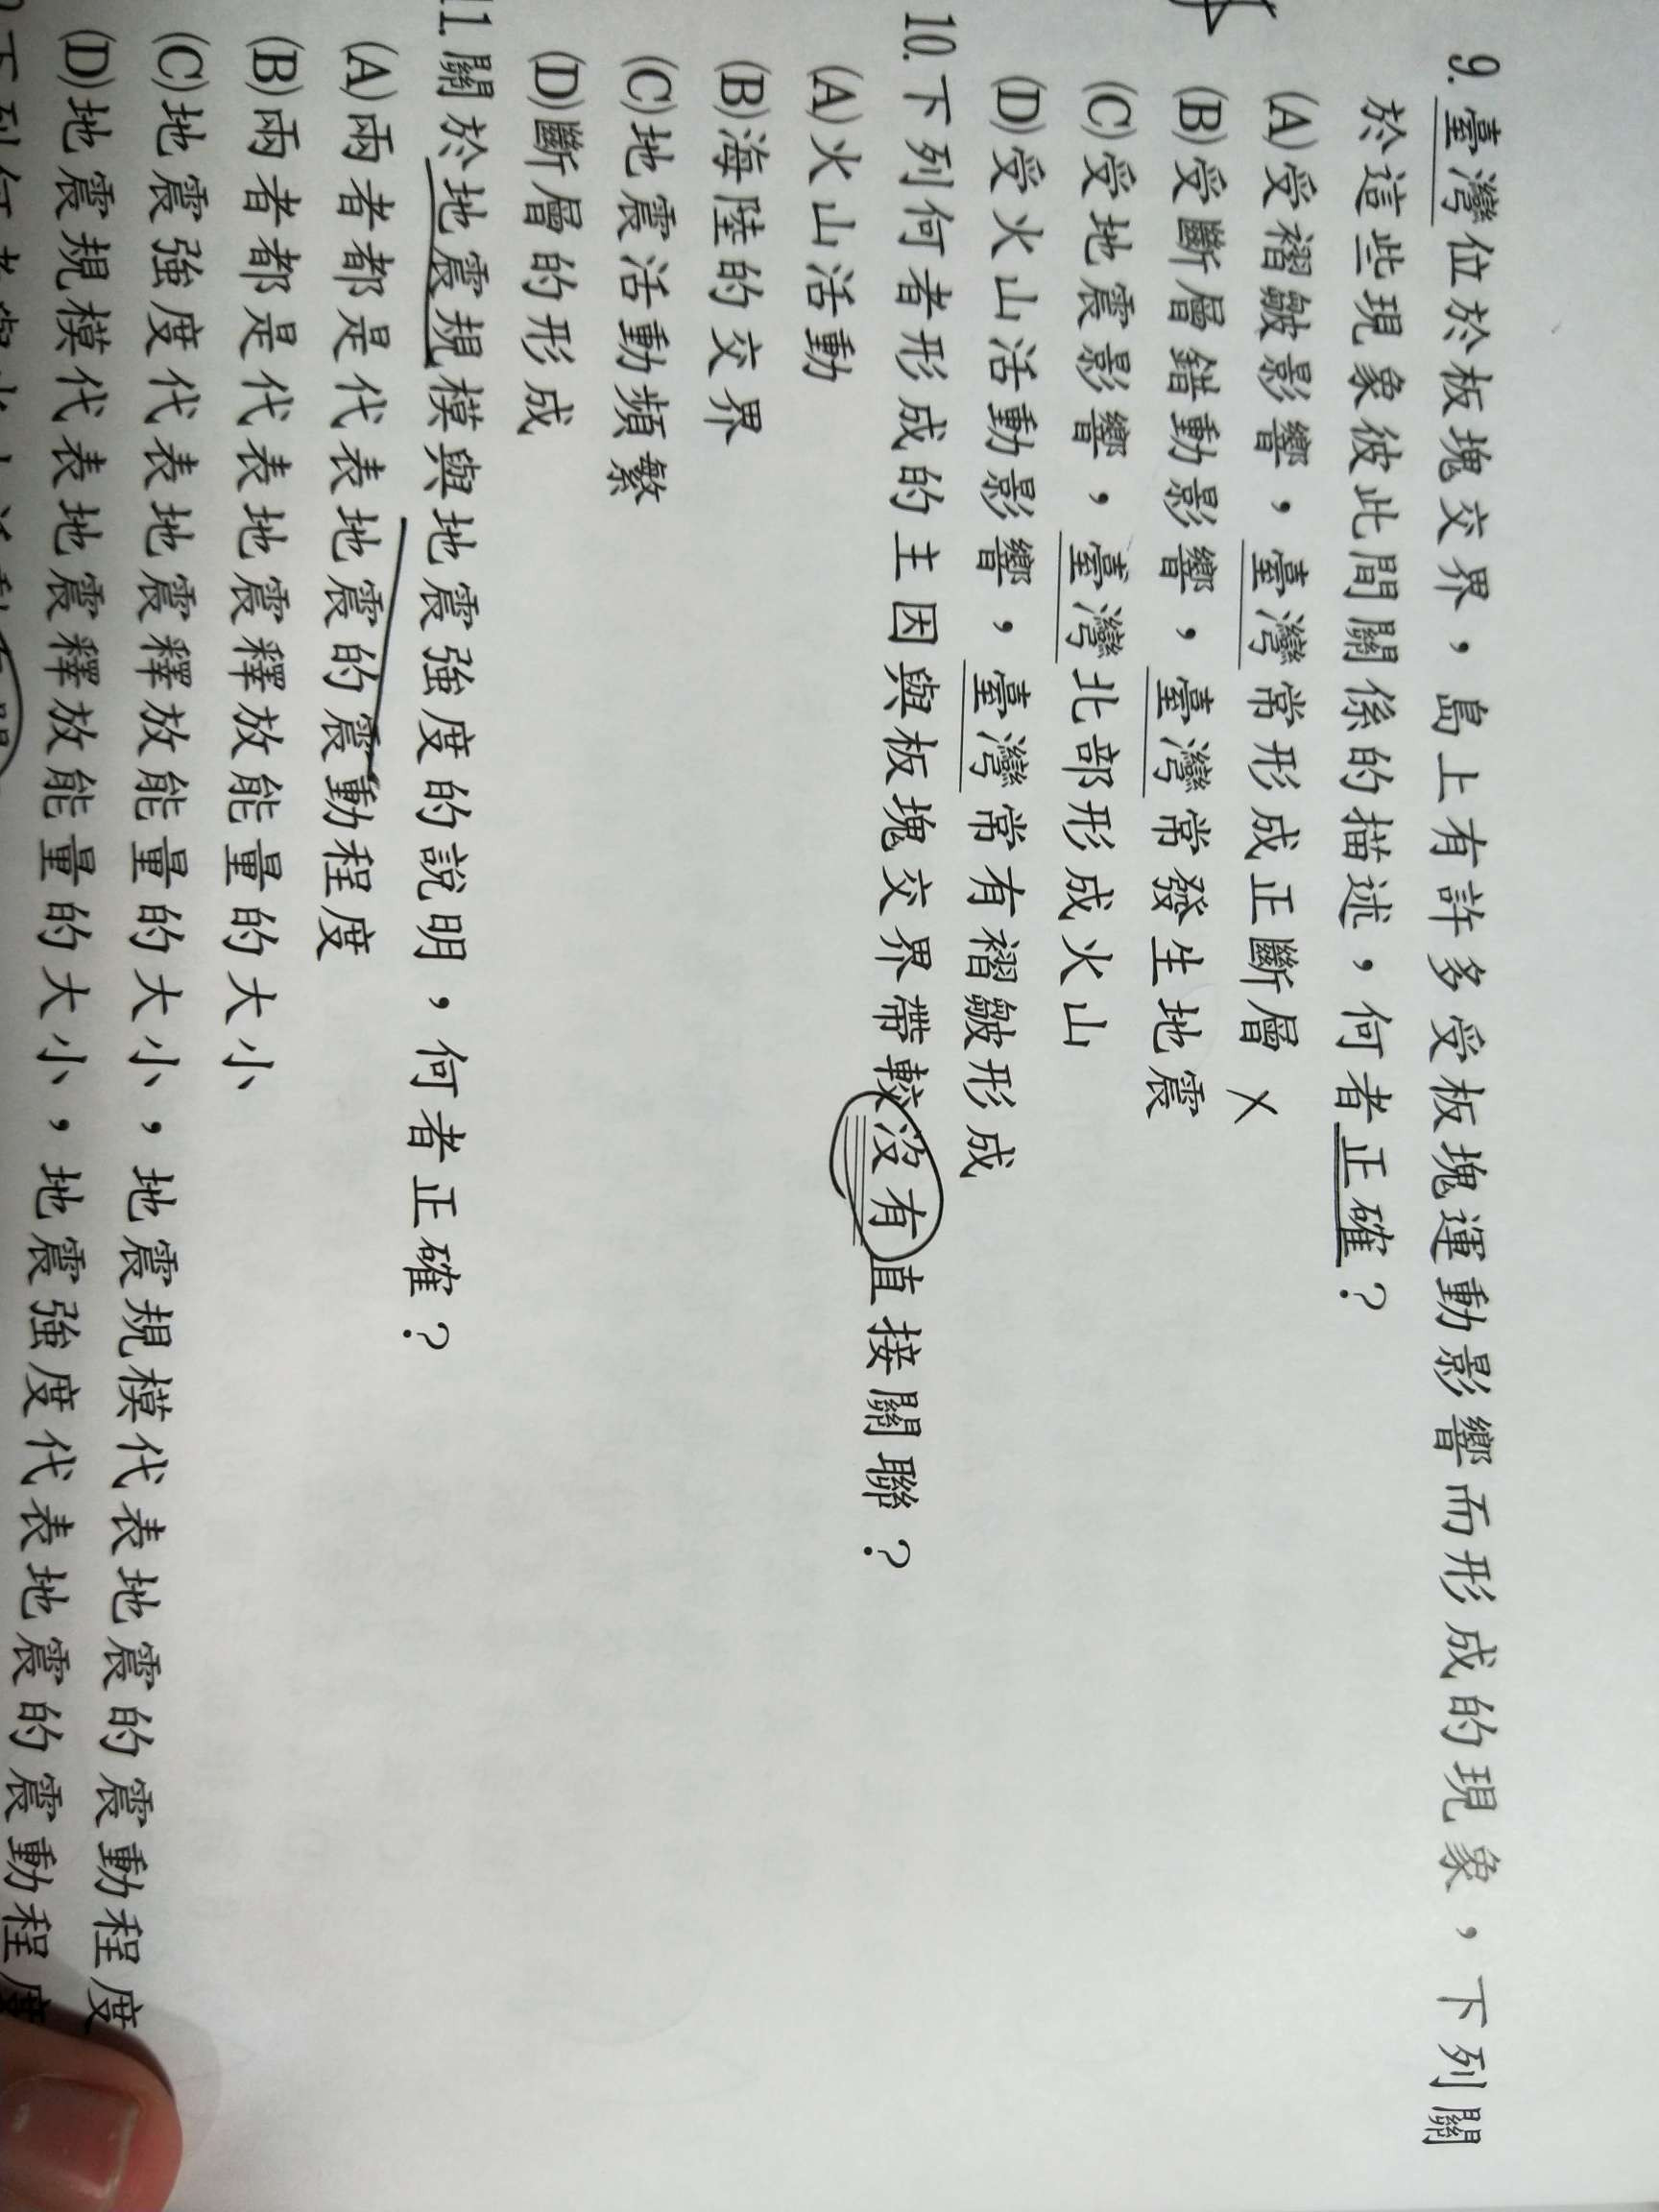 9.臺灣位於板塊交界，島上有許多受板塊運動影響而形成的現象，下列關
於這些現象彼此間關係的描述，何者正確？
(A)受褶皺影響，臺灣常形成正斷層 ×
(B)受斷層錯動影響，臺灣常發生地震
(C)受地震影響，臺灣北部形成火山
(D)受火山活動影響，臺灣常有褶皺形成
10.下列何者形成的主因與板塊交界帶較沒有直接關聯？
(A)火山活動
(B)海陸的交界
(C)地震活動頻繁
(D)斷層的形成
11.關於地震規模與地震強度的說明，何者正確？
(A)兩者都是代表地震的震動程度
(B)兩者都是代表地震釋放能量的大小
(C)地震強度代表地震釋放能量的大小，地震規模代表地震的震動程度
(D)地震規模代表地震釋放能量的大小，地震強度代表地震的震動程度
下列何者